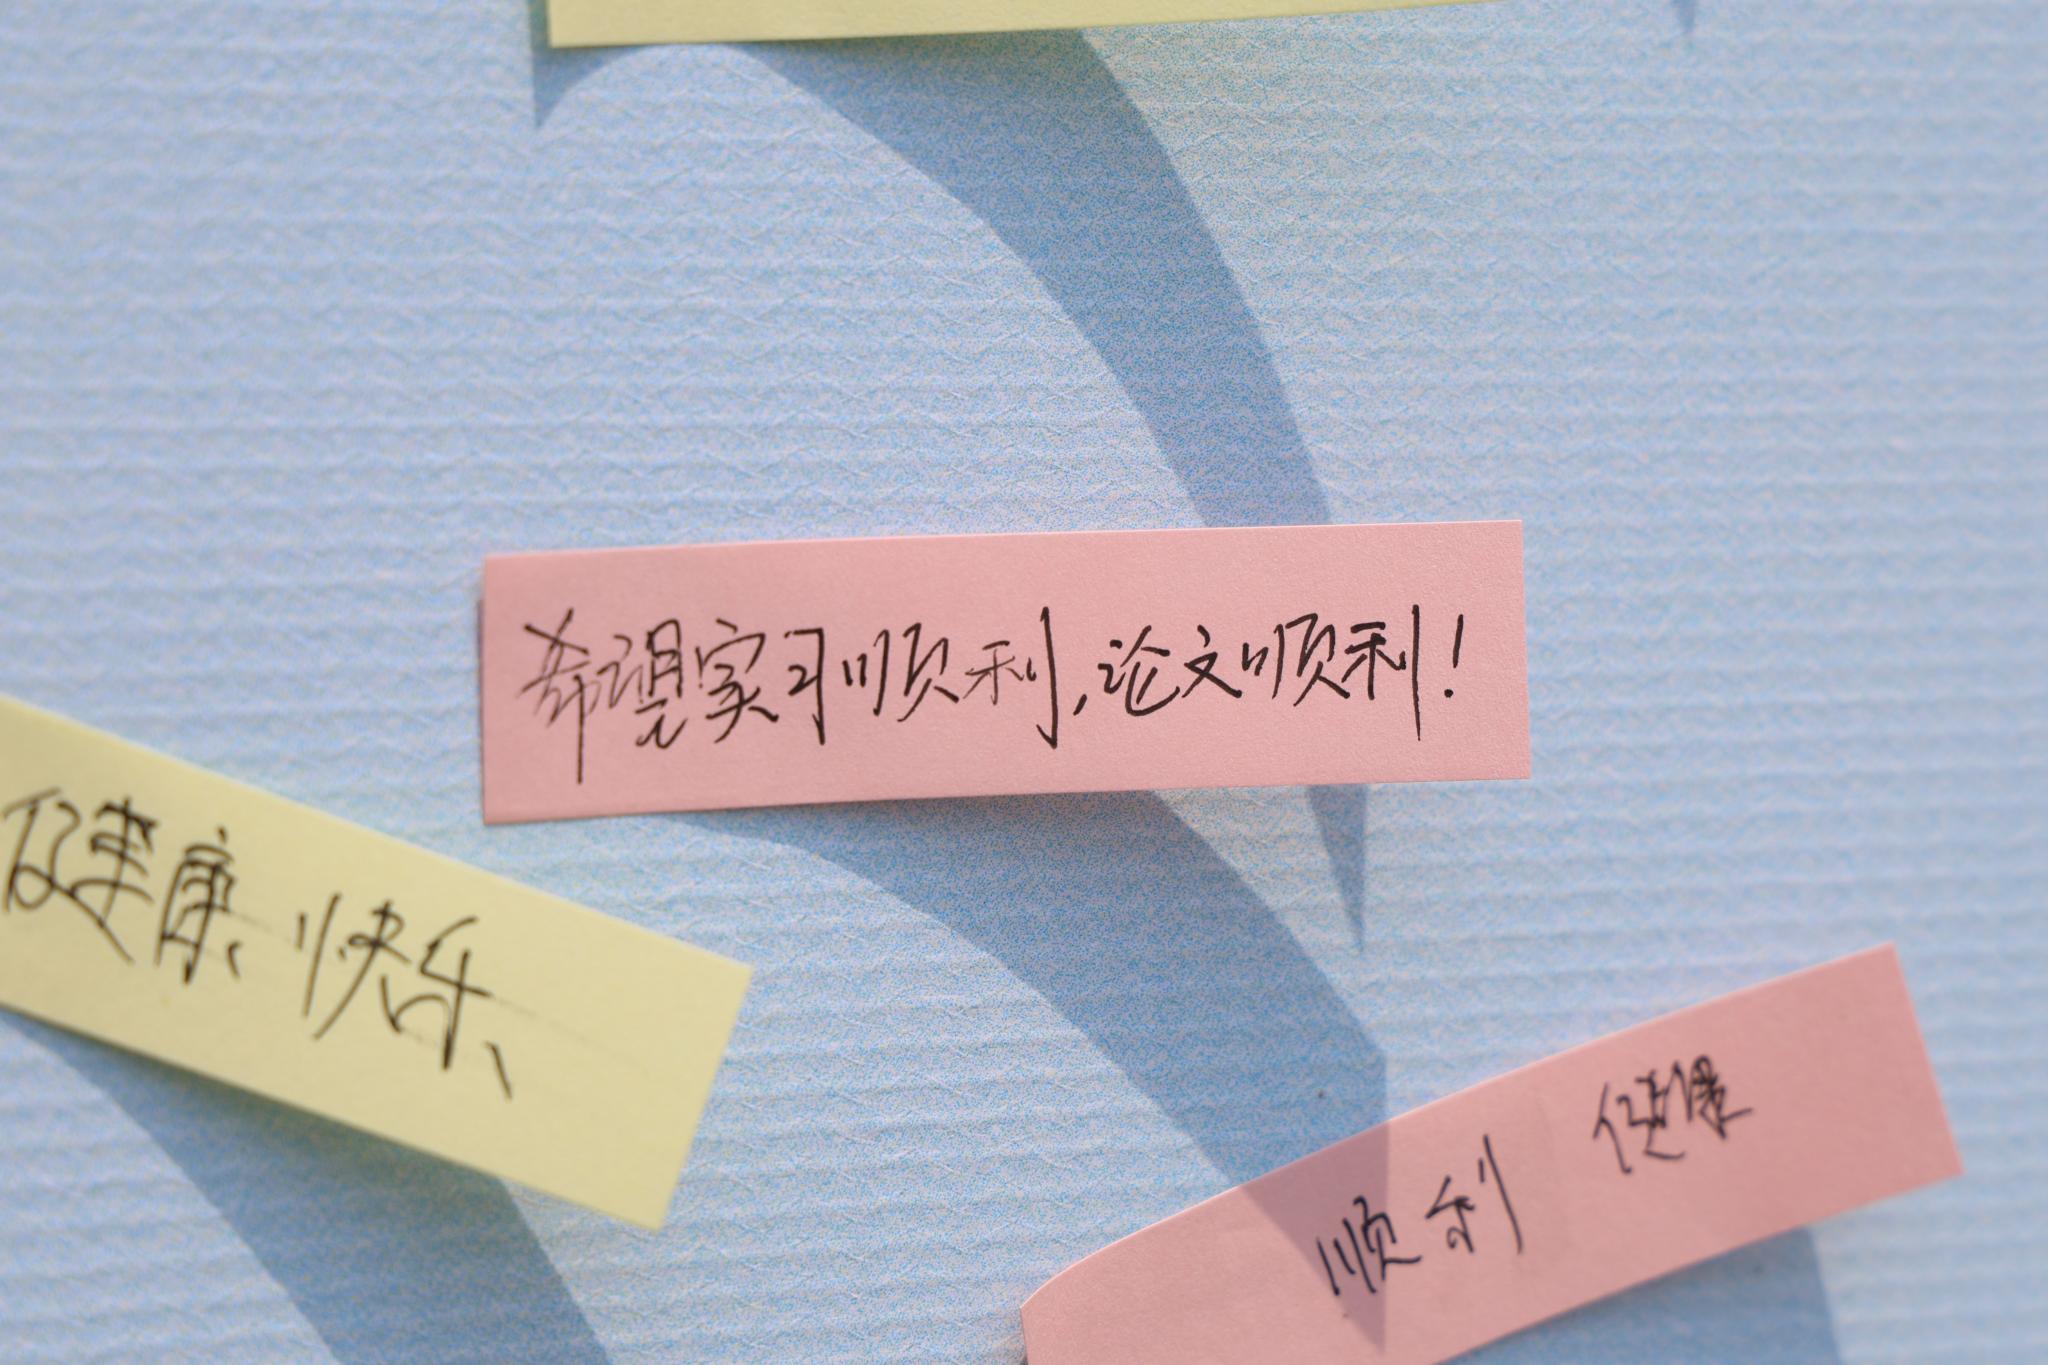 希望实习顺利,论文顺利!
健康 快乐、
顺利 健康